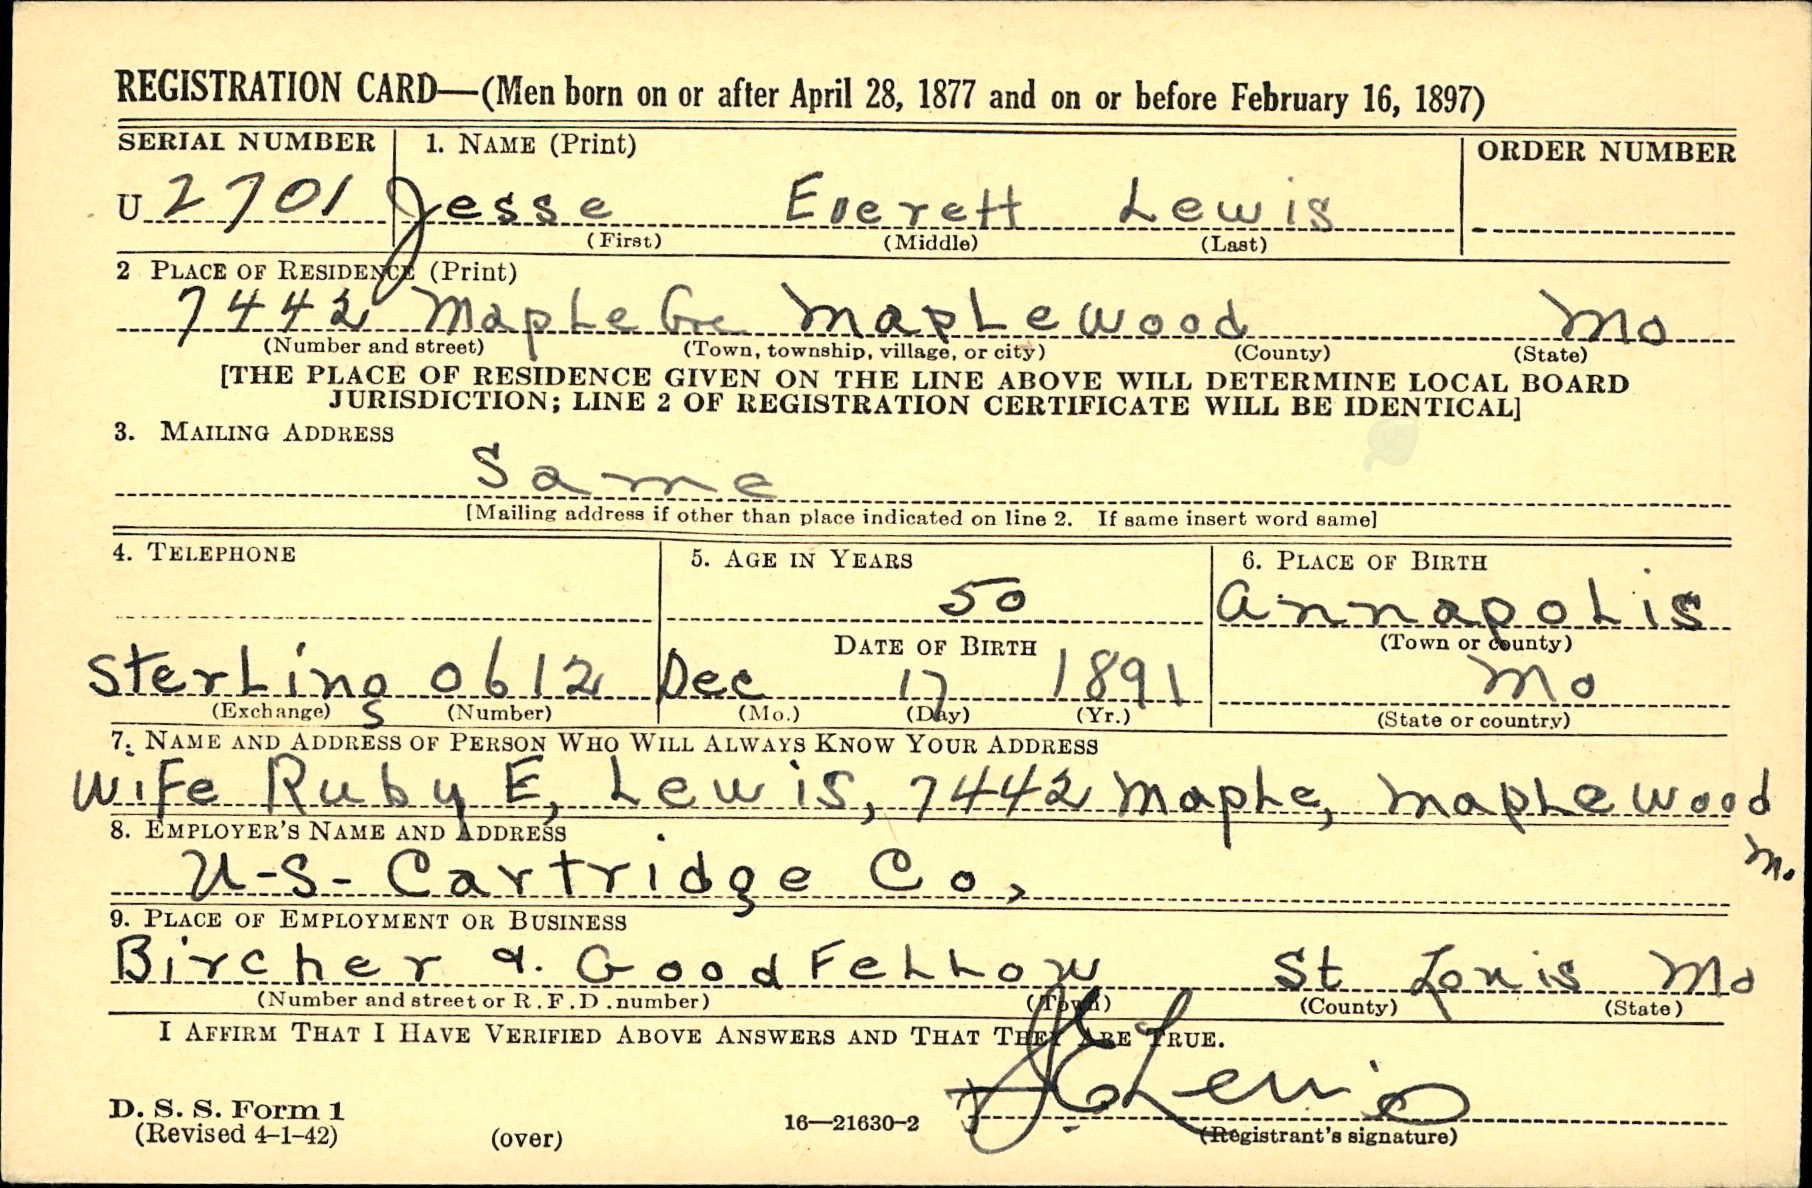 REGISTRATION CARD—(Men born on or after April 28, 1877 and on or before February 16, 1897)
SERIAL NUMBER 1. NAME (Print) ORDER NUMBER
U 2701 Jesse Everett Lewis
(First) (Middle) (Last)
2 PLACE OF RESIDENCE (Print)
7442 Maple Maplewood Mo
(Number and street) (Town, township, village, or city) (County) (State)
[THE PLACE OF RESIDENCE GIVEN ON THE LINE ABOVE WILL DETERMINE LOCAL BOARD
JURISDICTION; LINE 2 OF REGISTRATION CERTIFICATE WILL BE IDENTICAL]
3. MAILING ADDRESS
Same
[Mailing address if other than place indicated on line 2. If same insert word same]
4. TELEPHONE 5. AGE IN YEARS 6. PLACE OF BIRTH
50 Annapolis
DATE OF BIRTH (Town or county)
Sterling 0612 Dec 17 1891 Mo
(Exchange) (Number) (Mo.) (Day) (Yr.) (State or country)
7. NAME AND ADDRESS OF PERSON WHO WILL ALWAYS KNOW YOUR ADDRESS
Wife Ruby E, Lewis, 7442 Maple, Maplewood
M.
8. EMPLOYER'S NAME AND ADDRESS
U-S- Cartridge Co,
9. PLACE OF EMPLOYMENT OR BUSINESS
Bircher &. GoodFellow St Louis Mo
(Number and street or R.F.D. number) (Town) (County) (State)
I AFFIRM THAT I HAVE VERIFIED ABOVE ANSWERS AND THAT THEY ARE TRUE.
J. E. Lewis
D. S. S. Form 1
(Revised 4-1-42) (over) 16—21630-2 (Registrant's signature)